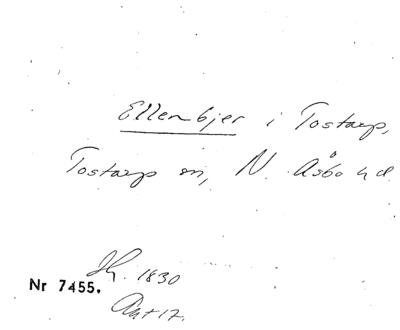 Ellenbjer i Tostarp,
Tostarp sn, N. Åsbo hd
1830
Nr 7455.
Akt 17.